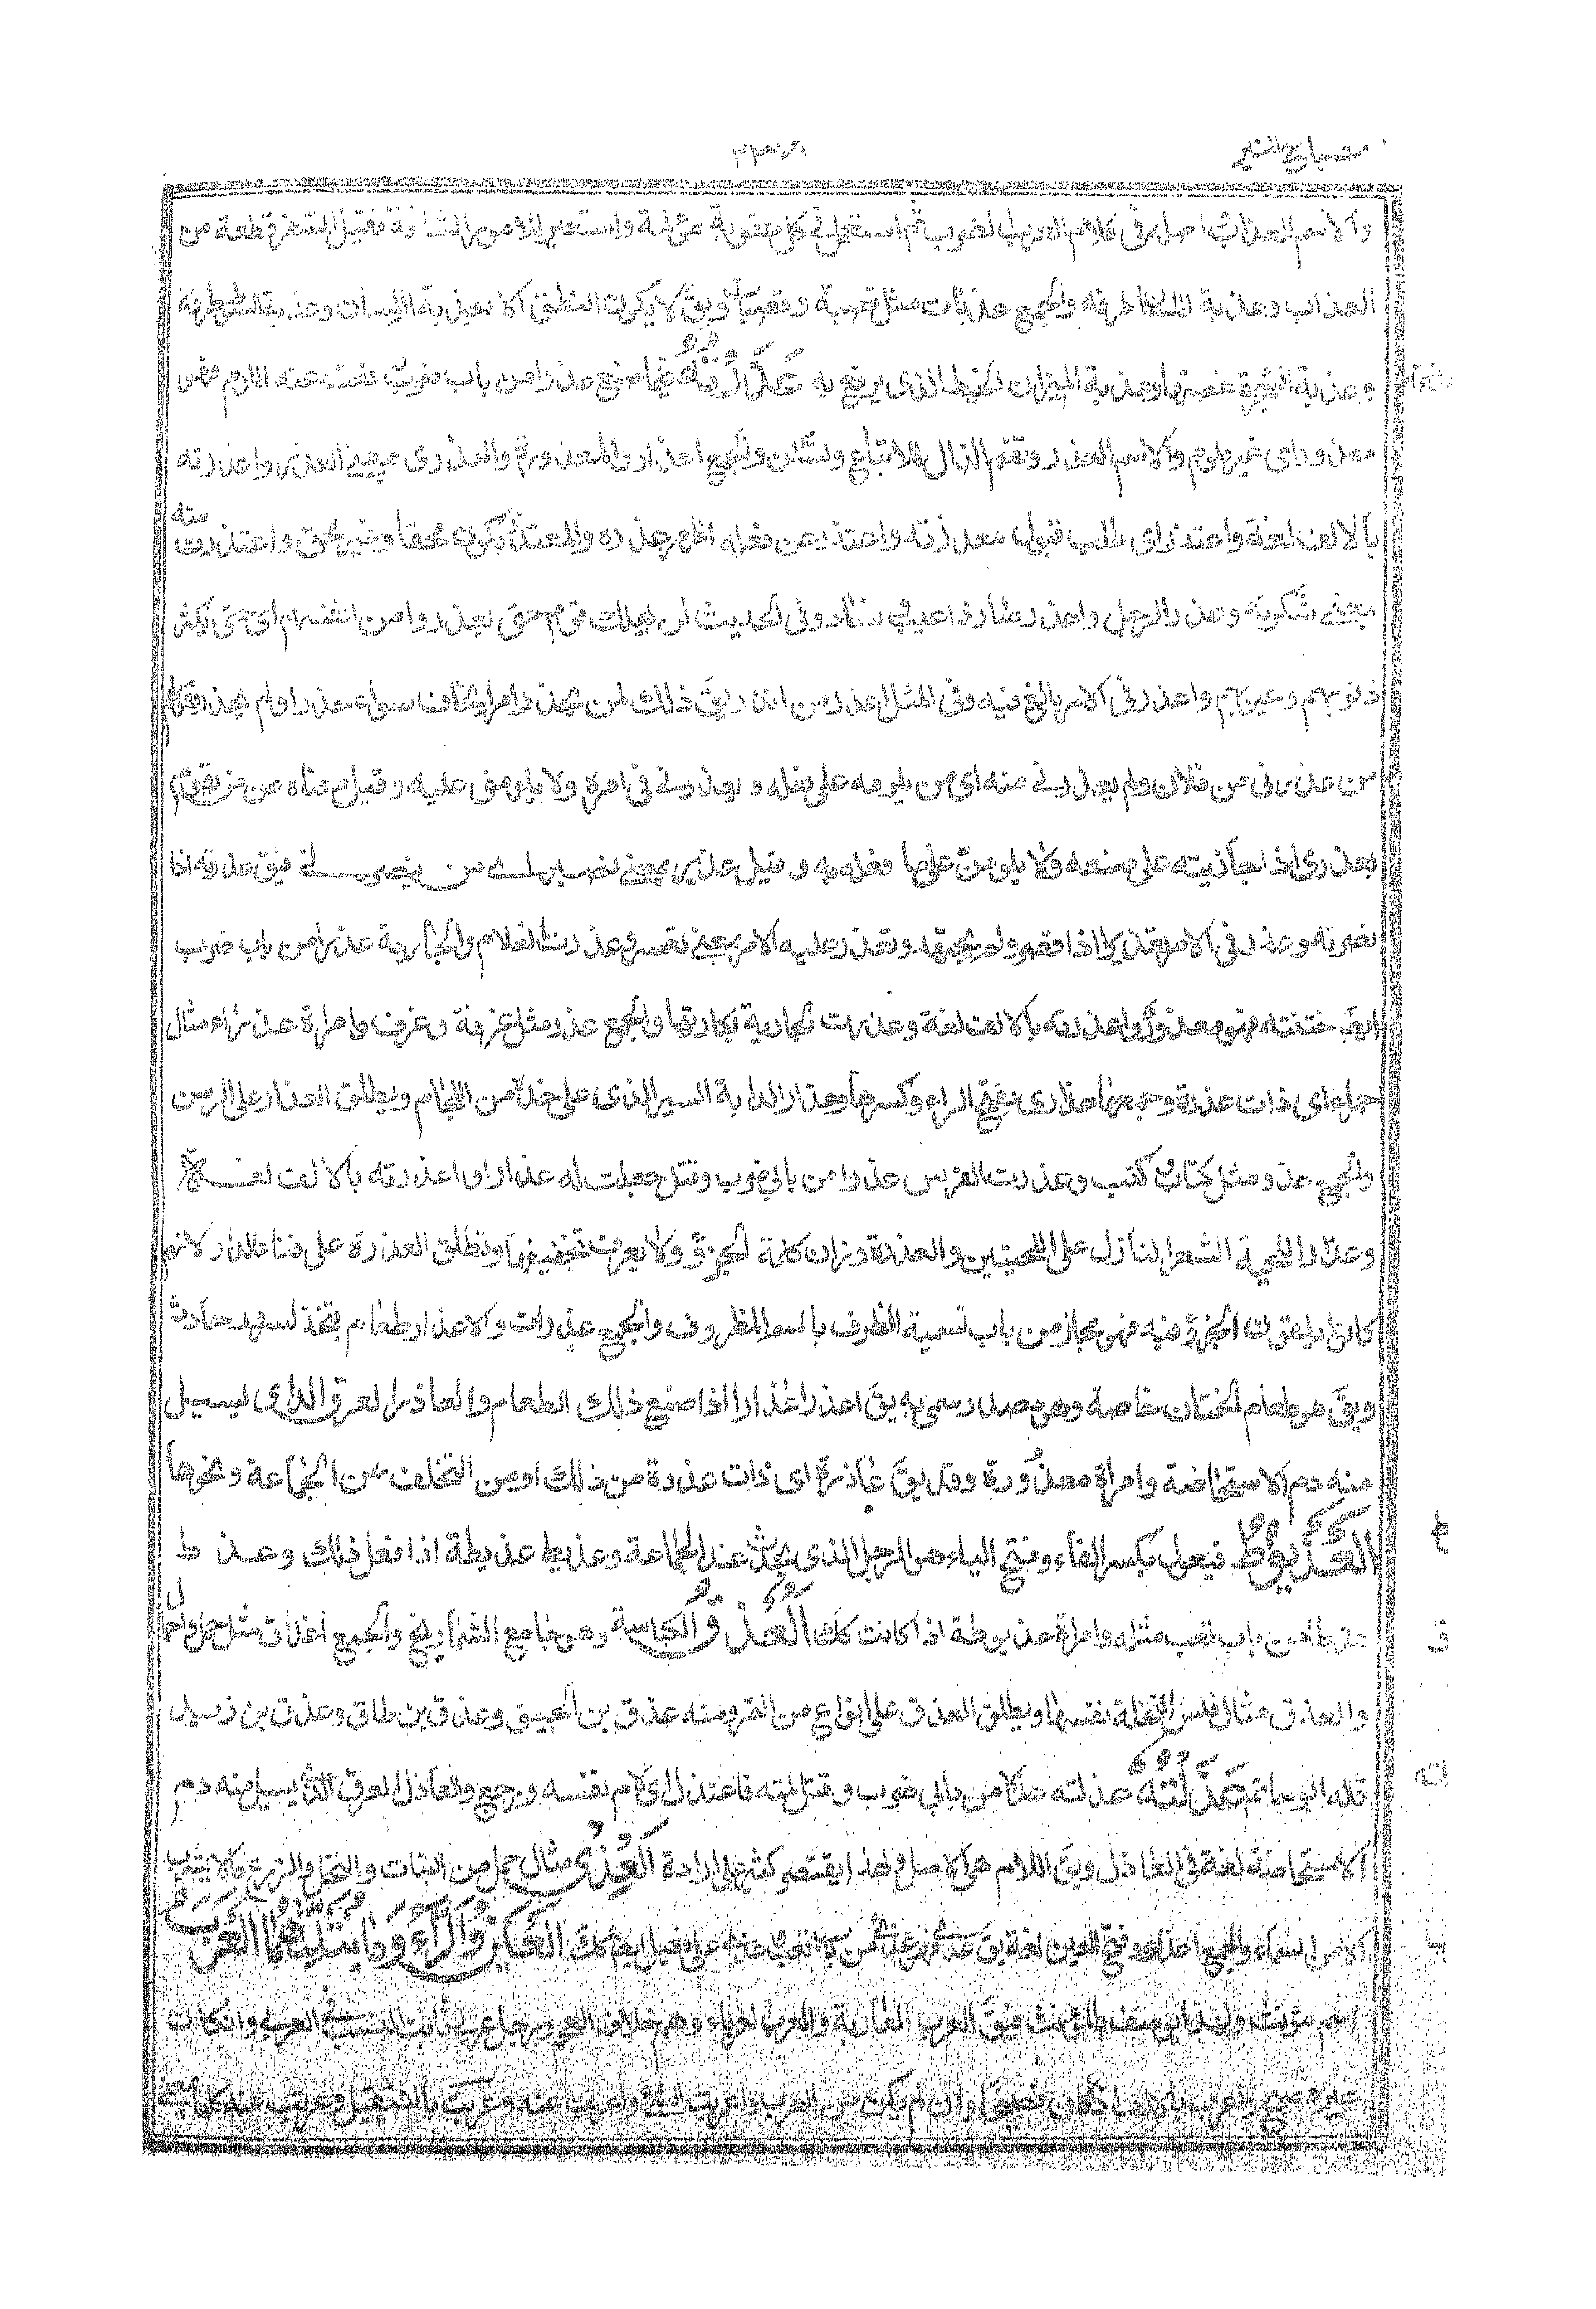 والاسم العذاب اصله في كلام العرب الضرب ثم استعمل في كل عقوبة مؤلمة واستعير للامور الشاقة فقيل السفر قطعة من
العذاب وعذبة اللسان طرفه والجمع عذبات مثل قصبة وقصبات ويقّ لا يكون النطق الا بعذبة اللسان وعذبة السوط طرفه
وعذبة الشجرة غصنها وعذبة الميزان الخيط الذي يرفع به عَذَرْتُهُ فيما صنع عذرا من باب ضرب رفعت عنه اللوم فهو
معذور اى غير ملوم والاسم العذر وتضم الذال للاتباع وتسكن والجمع اعذار والمعذورة والعذرى بمعنى العذر واعذرته
بالالف لغة واعتذر اى طلب قبول معذرته واعتذر عن فعله اظهر عذره والمعتذر يكون محقا وغير محق واعتذرت منه
بمعنى شكوته وعذر الرجل واعذر صار ذا عيب وفساد وفى الحديث لن يهلك قوم حتى يعذروا من انفسهم اى حتى تكثر
ذنوبهم وعيوبهم واعذر فى الامر بالغ فيه وفى المثل اعذر من انذر يقّ ذلك لمن يحذر امرا يخاف سواء حذر او لم يحذر وقولهم
من عذيرى من فلان ومن يعذرنى منه اى من يلومه على فعله ويعذرنى فى امره ولا يلومنى عليه وقيل معناه من يقوم
بعذرى اذا جازيته على صنعه ولا يلومنى على ما فعله به وقيل عذير بمعنى نصير اى من ينصرنى فيقّ عذرته اذا
نصرته وعذر فى الامر تعذيرا اذا قصر ولم يجتهد وتعذر عليه الامر بمعنى تعسر وعذرت الغلام والجارية عذرا من باب ضرب
ايضا ختنته فهو معذور واعذرته بالالف لغة وعذرة الجارية بكارتها والجمع عذر مثل غرفة وغرف وامراة عذراء مثال
حمراء اى ذات عذرة وجمعها عذارى بفتح الراء وكسرها وعذار الدابة السير الذى على خدها من اللجام ويطلق العذار على الرسن
والجمع عذر مثل كتاب وكتب وعذرت الفرس عذرا من بابي ضرب وقتل جعلت له عذارا واعذرته بالالف لغة
وعذار اللحية الشعر النازل على اللحيين والعذرة وزان كلمة الخرؤ ولا يعرف تخفيفها وتطلق العذرة على فناء الدار لانهم
كانوا يلقون الخرؤ فيه فهو مجاز من باب تسمية الظرف باسم المظروف والجمع عذرات والاعذار طعام يتخذ لسرور حادث
ويقّ هو طعام الختان خاصة وهو مصدر سمى به يقّ اعذر اعذارا اذا صنع ذلك الطعام والعاذر العرق الذى يسيل
منه دم الاستحاضة وامراة معذورة وقد يقّ عاذرة اى ذات عذرة من ذلك او من التخلف عن الجماعة ونحوها
العِذْيَوْطُ فعيول بكسر الفاء وفتح الياء هو الرجل الذى يحدث عند الجماعة وعذيط عذيطة اذا فعل ذلك وعذط
عذطا من باب تعب مثله وامراة عذيوطة اذا كانت كذلك اَلْعِذْقُ الكباسة وهو جامع الشماريخ والجمع اعذاق مثل حمل واحمال
والعذق مثال فلس النخلة نفسها ويطلق العذق على انواع من التمر ومنه عذق بن الحبيق وعذق بن طاق وعذق بن زيد
قاله ابو حاتم عَذَلْتُهُ عذلته عذلا من بابي ضرب وقتل لمته فاعتذل اى لام نفسه ورجع والعاذل العرق الذى يسيل منه دم
الاستحاضة لغة فى العاذر ويقّ اللام هى الاصل ولهذا يقتصر كثير على ايراده اَلْعِذْىُ مثال حمل من النبات والنخل والزرع ما لا يشرب
الا من السماء والجمع اعذاء وفتح العين لغة يقّ عذى فهو عذ من باب تعب وعذى على فعيل ايضا كذلك العَيْنُ وَالرَّاءُ وَمَا يُثَلِّثُهُمَا العَرَبُ
اسم مؤنث ولهذا يوصف بالمؤنث فيقّ العرب العاربة والعرب العرباء وهم خلاف العجم ورجل عربى ثابت النسب فى العرب وان كان
غير فصيح واعرب بالالف اذا كان فصيحا وان لم يكن من العرب واعربت الشئ واعربت عنه وعربت بالتثقيل وعربت عنه كلها